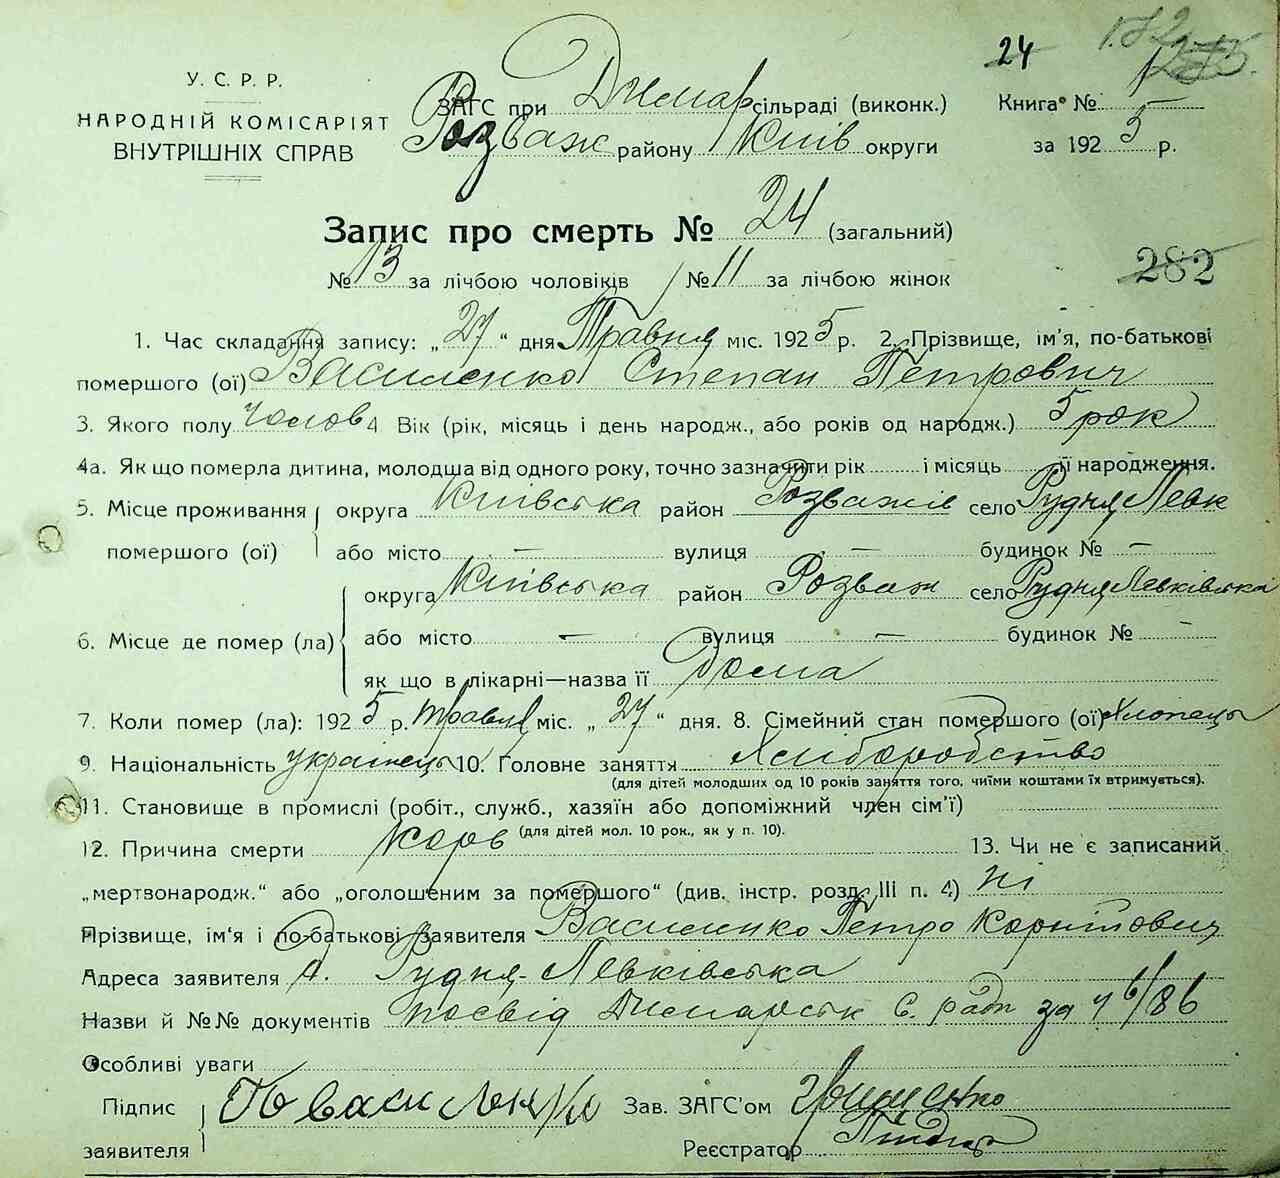 24
У. С. Р. Р.
НАРОДНІЙ КОМІСАРІЯТ
ВНУТРІШНІХ СПРАВ
ЗАГС при Димар сільраді (виконк.) Книга №
Розваж району Київ округи за 1925 р.
Запис про смерть № 24 (загальний)
282
№ 13 за лічбою чоловіків / № 11 за лічбою жінок
1. Час складання запису: „27“ дня Травня міс. 1925 р. 2. Прізвище, ім'я, по-батькові
помершого (ої) Василенко Степан Петрович
3. Якого полу чолов 4 Вік (рік, місяць і день народж., або років од народж.) 5 рок
4а. Як що померла дитина, молодша від одного року, точно зазначити рік і місяць її народження.
5. Місце проживання округа Київська район Розважів село Рудня Левк
помершого (ої) або місто — вулиця — будинок № —
округа Київська район Розваж село Рудня Левківська
6. Місце де помер (ла) або місто — вулиця — будинок № —
як що в лікарні—назва її Дома
7. Коли помер (ла): 1925 р. травня міс. „27“ дня. 8. Сімейний стан помершого (ої) Хлопець
9. Національність українець 10. Головне заняття Хліборобство
(для дітей молодших од 10 років заняття того, чиїми коштами їх втримується).
11. Становище в промислі (робіт., служб., хазяїн або допоміжний член сім'ї)
(для дітей мол. 10 рок., як у п. 10).
12. Причина смерти Коръ 13. Чи не є записаний
„мертвонародж.“ або „оголошеним за помершого“ (див. інстр. розд. III п. 4) ні
Прізвище, ім'я і по-батькові заявителя Василенко Петро Корнійович
Адреса заявителя Рудня-Левківська
Назви й №№ документів посвід Димарськ С. ради за ч
Особливі уваги
Підпис П Василенко Зав. ЗАГС'ом Грищенко
заявителя Реєстратор